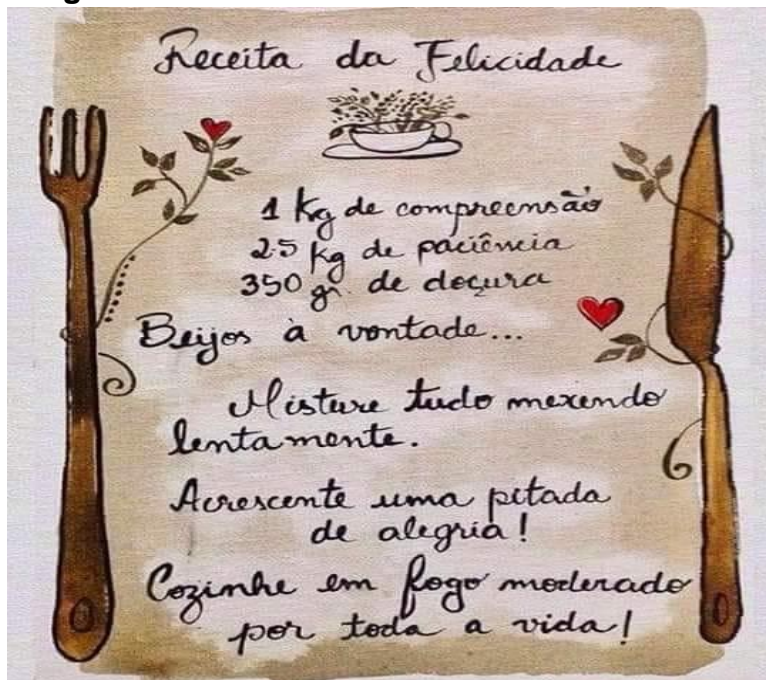 Receita da Felicidade
1 Kg de compreensão
2.5 kg de paciência
350 gr. de doçura
Beijos à vontade...
Misture tudo mexendo
lentamente.
Acrescente uma pitada
de alegria!
Cozinhe em fogo moderado
por toda a vida!